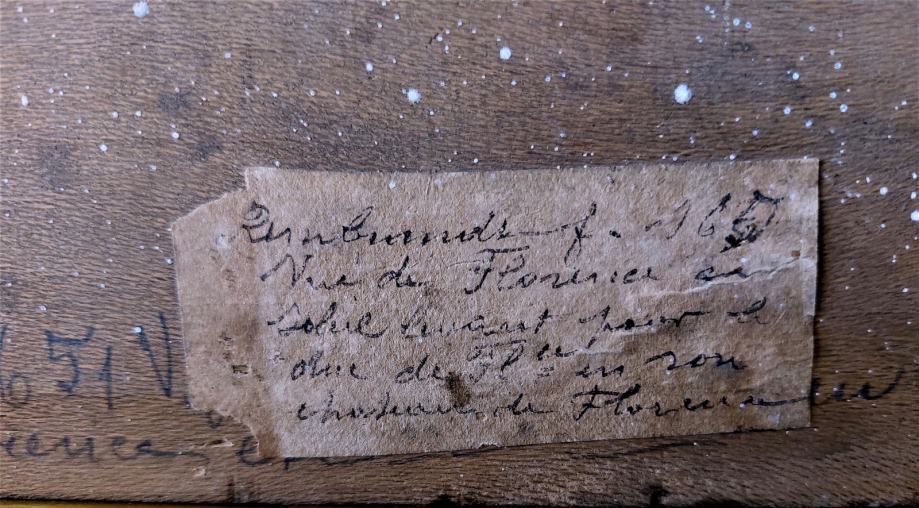 Rembrandt f. 165
Vue de Florence au
Soleil levant pour le
duc de Fl en son
chateau de Florence
51 V